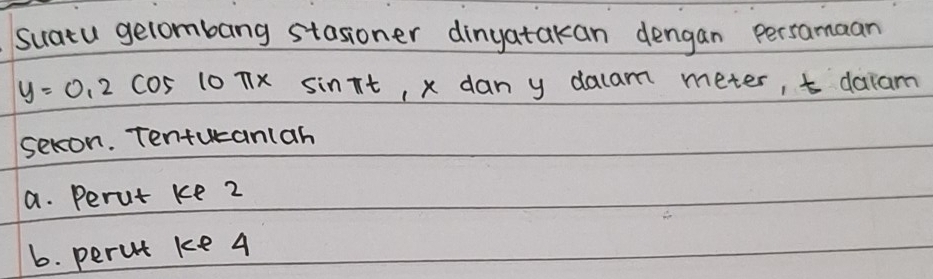 Suatu gelombang stasioner dinyatakan dengan persamaan
y = 0,2 cos 10 πx sin πt, x dan y dalam meter, t dalam
sekon. Tentukanlah
a. Perut ke 2
b. perut ke 4